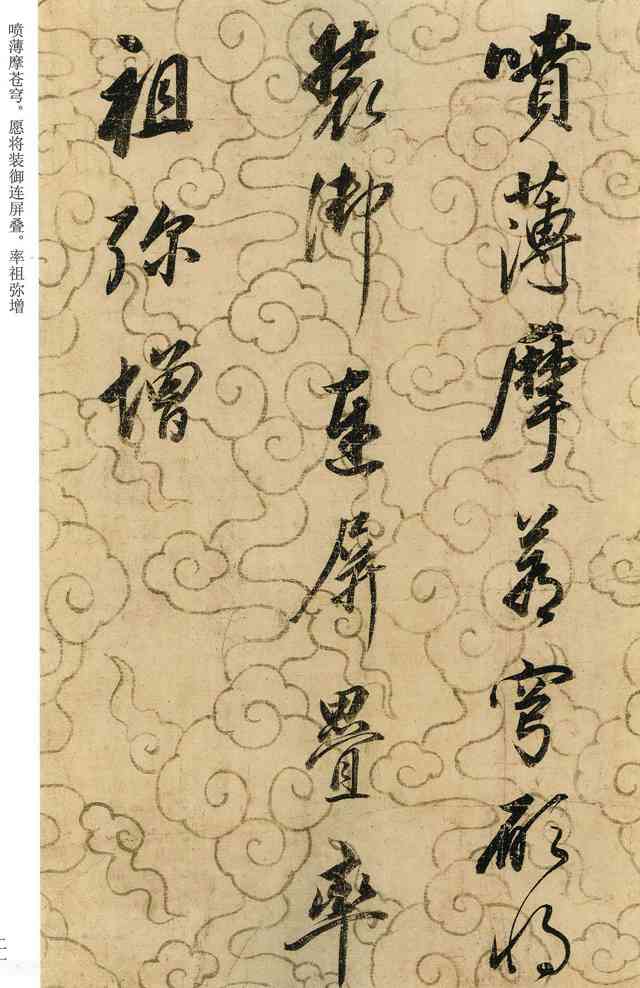 噴薄摩蒼穹願將
裝御連屏疊率
祖弥增
喷薄摩苍穹。愿将装御连屏叠。率祖弥增
二一